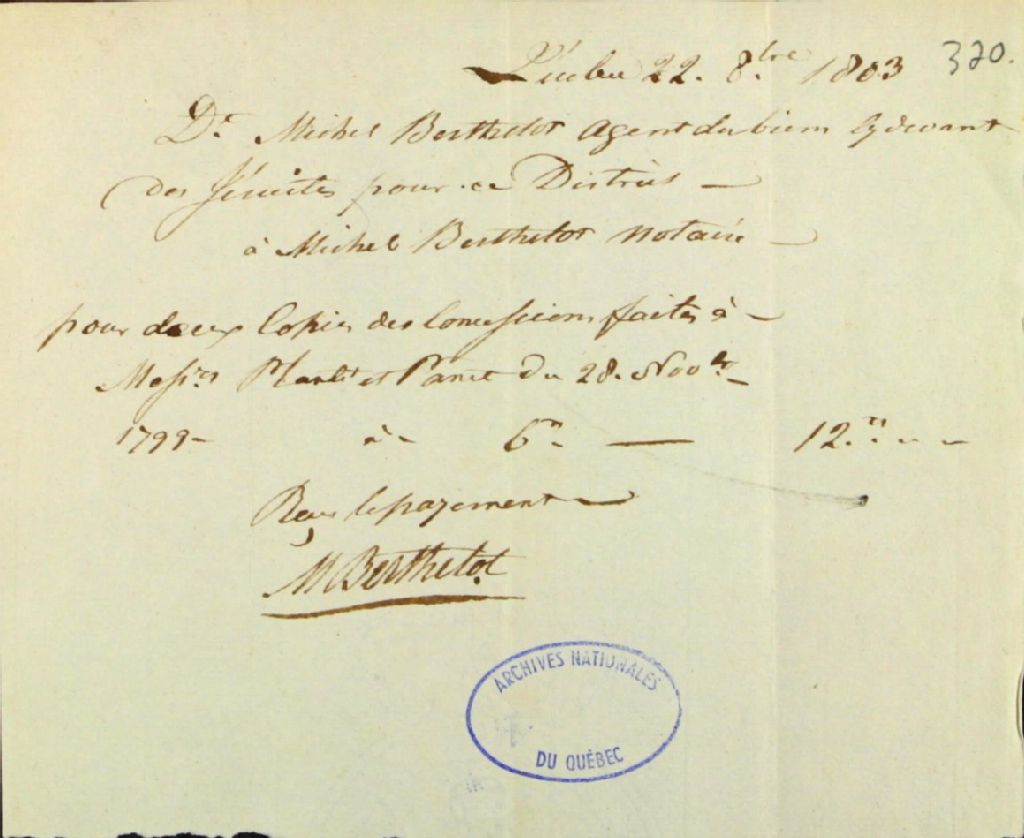 Québec 22. 8.bre 1803 320.
Dr. Michel Berthelot Agent du biens cy devant
des Jésuites pour ce District —
à Michel Berthelot Notaire —
pour deux Copies des Concessions faites à —
Messrs et Panet du 28. Novbre —
1799 — à - 6tt. — 12.tt - -
Reçu le payement —
M Berthelot
ARCHIVES NATIONALES
DU QUÉBEC